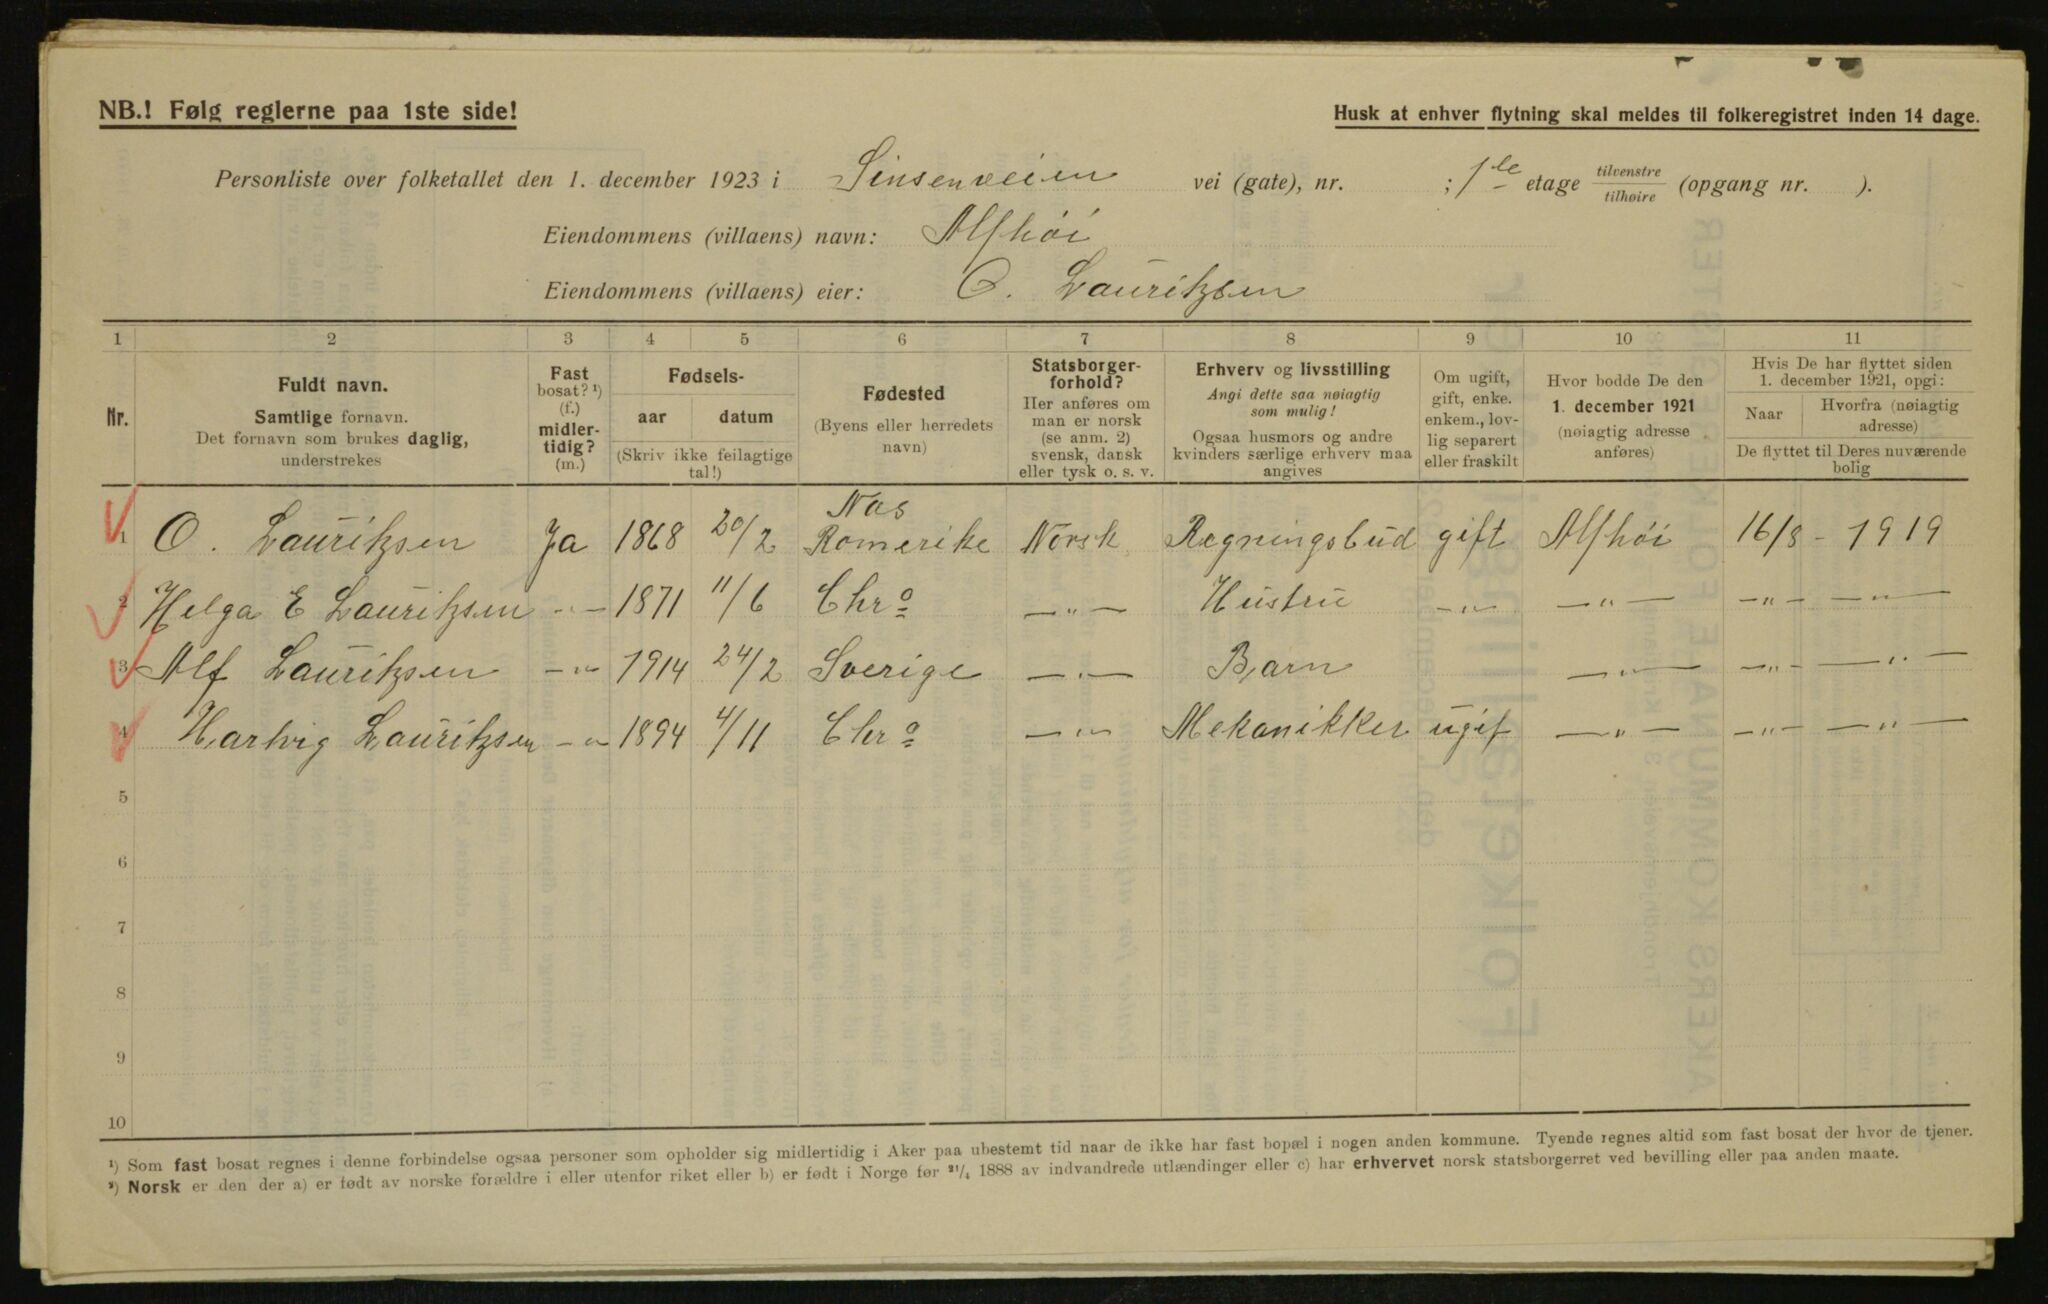 NB.! Følg reglerne paa 1ste side!
Husk at enhver flytning skal meldes til folkeregistret inden 14 dage.
Personliste over folketallet den 1. december 1923 i Sinsenveien vei (gate), nr. ; 1ste etage tilvenstre/tilhøire (opgang nr. ).
Eiendommens (villaens) navn: Alfhöi
Eiendommens (villaens) eier: O. Lauritzsen
1 2 3 4 5 6 7 8 9 10 11
Nr.
Fuldt navn.
Samtlige fornavn.
Det fornavn som brukes daglig,
understrekes
Fast
bosat? ¹)
(f.)
midler-
tidig?
(m.)
Fødsels-
aar datum
(Skriv ikke feilagtige
tal!)
Fødested
(Byens eller herredets
navn)
Statsborger-
forhold?
Her anføres om
man er norsk
(se anm. 2)
svensk, dansk
eller tysk o. s. v.
Erhverv og livsstilling
Angi dette saa nøiagtig
som mulig!
Ogsaa husmors og andre
kvinders særlige erhverv maa
angives
Om ugift,
gift, enke.
enkem., lov-
lig separert
eller fraskilt
Hvor bodde De den
1. december 1921
(nøiagtig adresse
anføres)
Hvis De har flyttet siden
1. december 1921, opgi:
Naar
Hvorfra (nøiagtig
adresse)
De flyttet til Deres nuværende
bolig
1 O. Lauritzsen Ja 1868 20/2 Nas Romerike Norsk Regningsbud gift Alfhöi 16/8 - 1919
2 Helga E Lauritzsen -"- 1871 11/6 Chro -"- Hustru -"- -"- -"- -"-
3 Alf Lauritzsen -"- 1914 24/2 Sverige -"- Barn -"- -"- -"-
4 Hartvig Lauritzsen -"- 1894 4/11 Chro -"- Mekanikker ugif -"- -"- -"-
5
6
7
8
9
10
¹) Som fast bosat regnes i denne forbindelse ogsaa personer som opholder sig midlertidig i Aker paa ubestemt tid naar de ikke har fast bopæl i nogen anden kommune. Tyende regnes altid som fast bosat der hvor de tjener.
²) Norsk er den der a) er født av norske forældre i eller utenfor riket eller b) er født i Norge før ²¹/₄ 1888 av indvandrede utlændinger eller c) har erhvervet norsk statsborgerret ved bevilling eller paa anden maate.